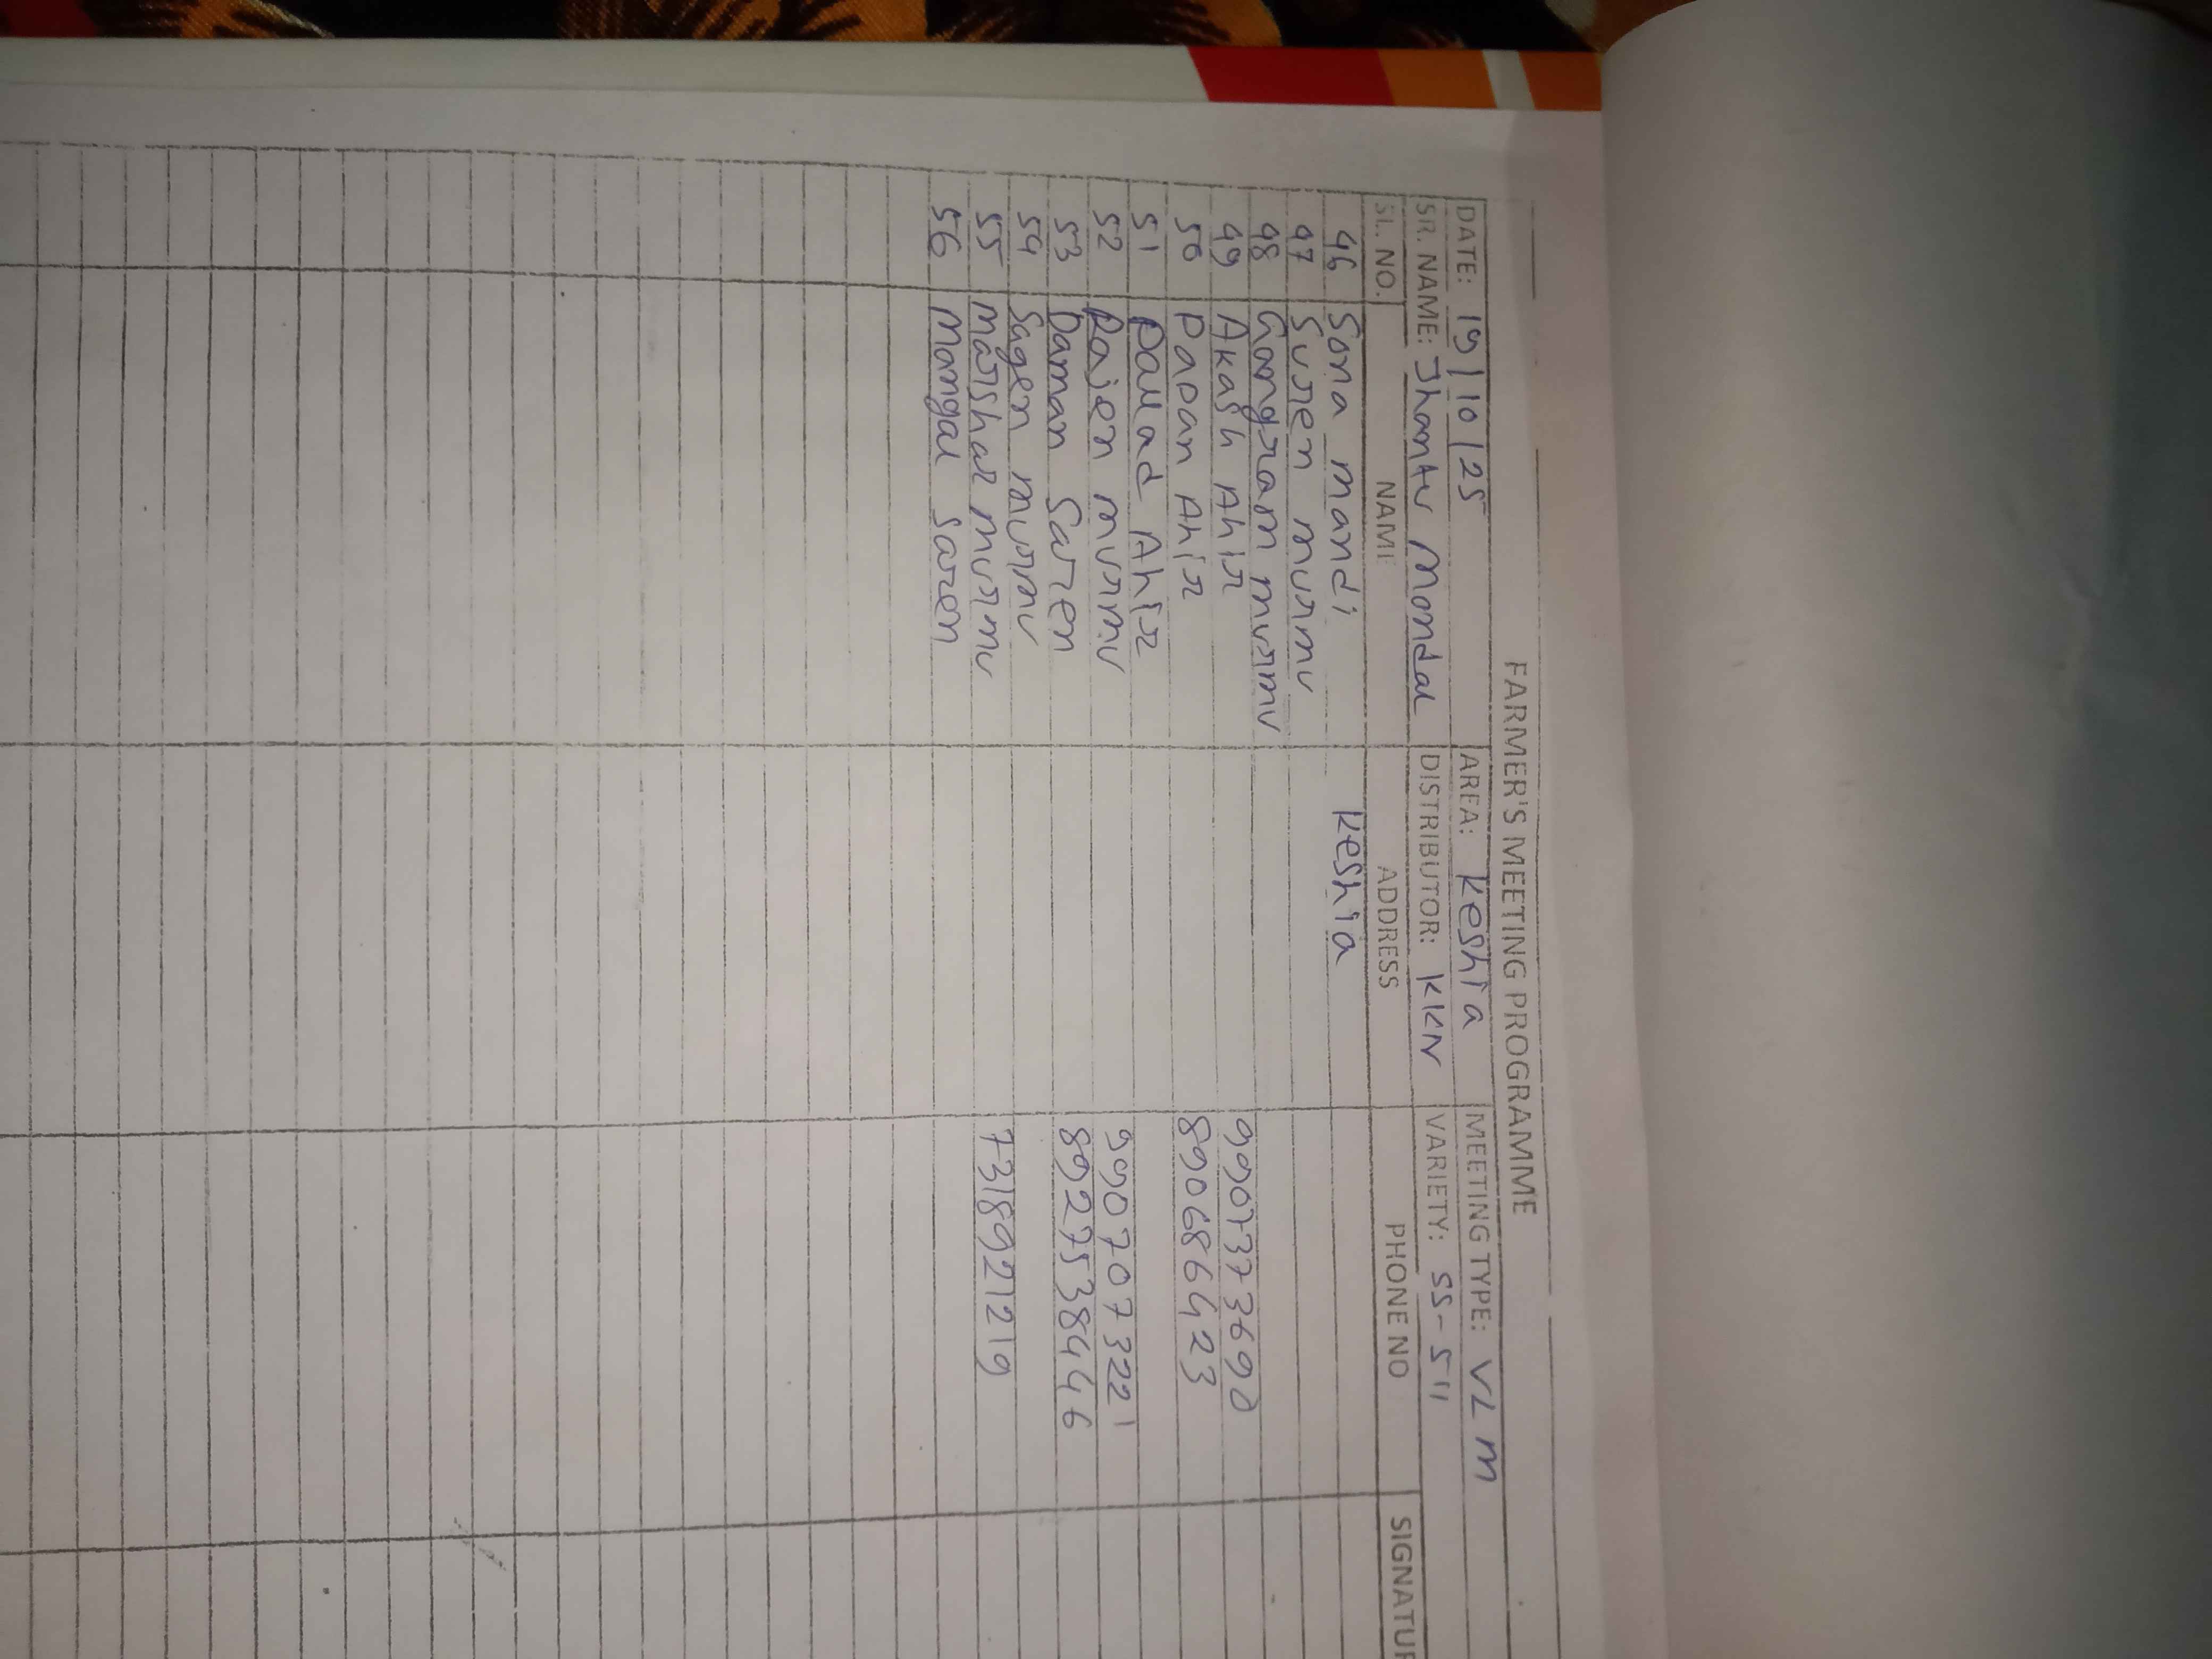 FARMER'S MEETING PROGRAMME
DATE: 19/10/25 AREA: Keshia MEETING TYPE: VLM
SR. NAME: Jhantu Mondal DISTRIBUTOR: KKN VARIETY: SS-511
SL. NO. NAME ADDRESS PHONE NO SIGNATUR
46 Sona mandi Keshia
47 Suren murmu
48 Gangram murmu
49 Akash Ahir 9907373690
50 Papan Ahir 8906864423
51 Ahir
52 Rajen murmu 9907073221
53 Daman Saren 8927538446
54 Sagen murmu
55 Marshal murmu 7318921219
56 Mangal Saren